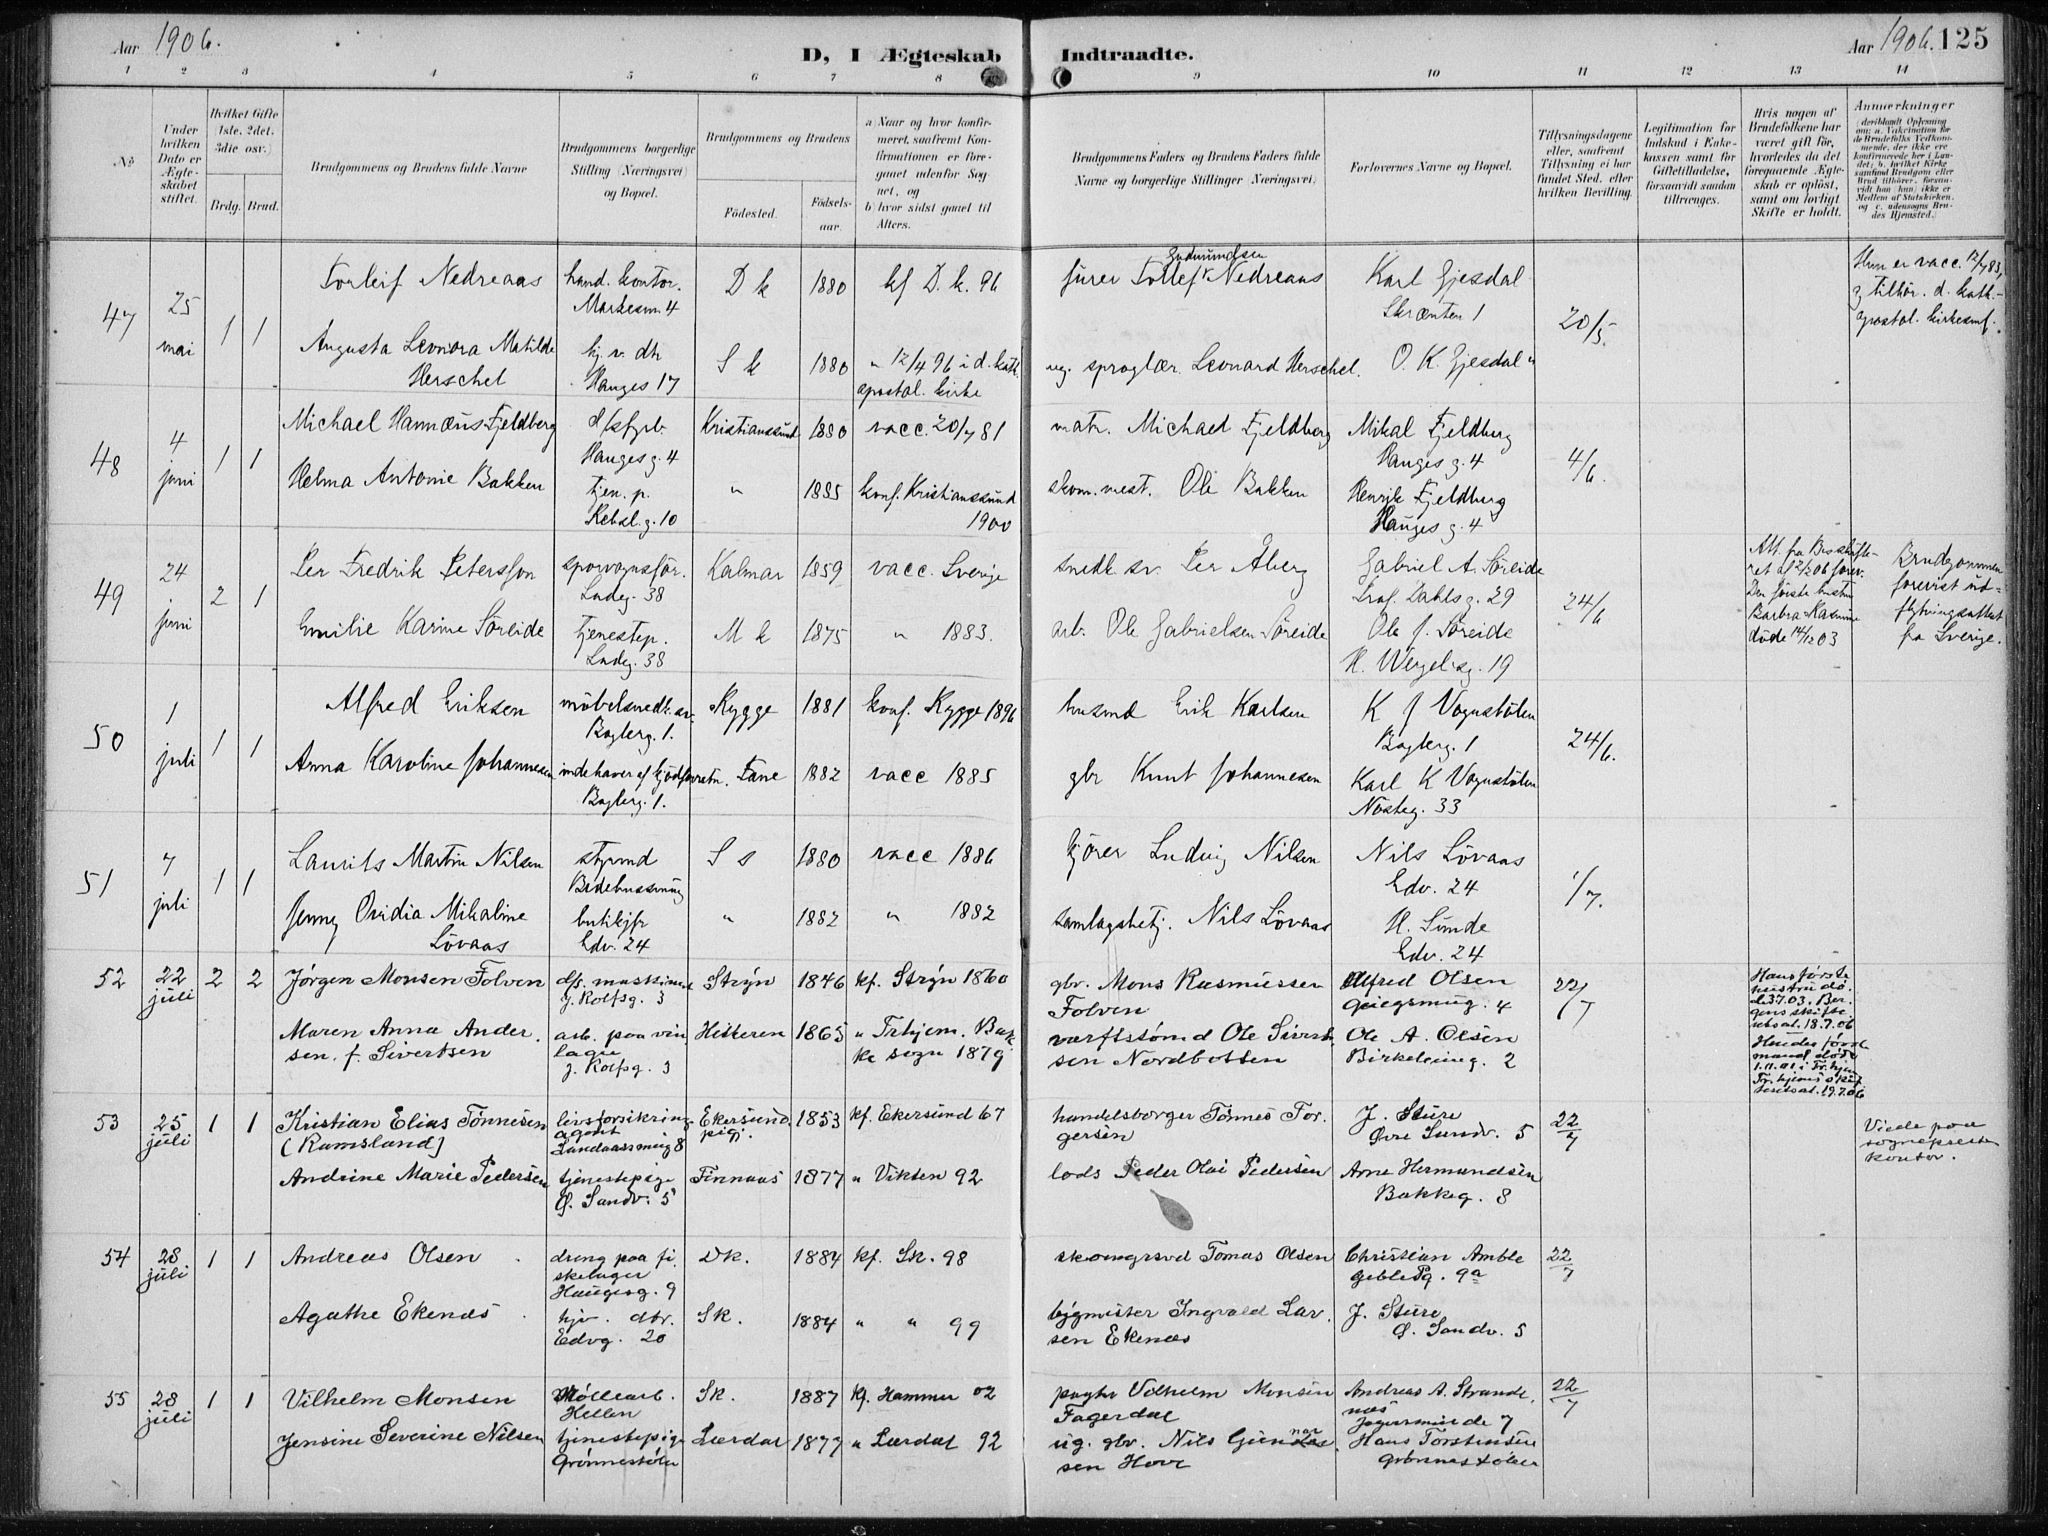 Aar 1906.
D, I Ægteskab Indtraadte.
Aar 1906. 125
1 2 3 4 5 6 7 8 9 10 11 12 13 14
No
Under hvilken Dato er Ægteskabet stiftet.
Hvilket Gifte (1ste, 2det, 3die osv.)
Brdg. Brud.
Brudgommens og Brudens fulde Navne
Brudgommens borgerlige Stilling (Næringsvei) og Bopæl.
Brudgommens og Brudens
Födested.
Födselsaar.
a) Naar og hvor konfirmeret, saafremt Konfirmationen er foregaaet udenfor Sognet, og
b) hvor sidst gaaet til Alters.
Brudgommens Faders og Brudens Faders fulde Navne og borgerlige Stillinger (Næringsvei.)
Forlovernes Navne og Bopæl.
Tillysningsdagene eller, saafremt Tillysning ei har fundet Sted, efter hvilken Bevilling.
Legitimation for Indskud i Enkekassen samt for Giftetilladelse, forsaavidt saadan tiltrænges.
Hvis nogen af Brudefolkene har været gift før, hvorledes da det foregaaende Ægteskab er opløst, samt om lovligt Skifte er holdt.
Anmærkninger
47 25 mai 1 1
Torleif Nedreaas hand. kontor. Markesm. 4 D k 1880 kf D. k. 96
fører Tollef Gudmundsen Nedreaas
Karl Gjesdal Skrænten 1
20/5.
Hun er vacc. 12/7 83, og tilhør. d. kath.- apostol. kirkesmf.
Augusta Leonora Matilde Herschel hj. v. dtr Hauges 17 S k 1880 " 12/4 96 i d. kath. apostol. kirke
ug. sproglær. Leonard Herschel.
O. K. Gjesdal "
48 4 juni 1 1
Michael Hannæus Fjeldberg Hauges g. 4 Kristianssund 1880 vacc. 20/7 81
matr. Michael Fjeldberg
Mikal Fjeldberg Hauges g. 4
4/6.
Helma Antonie Bakken tjen. p. Rebsl. g. 10 " 1885 konf. Kristianssund 1900
skom. mest. Ole Bakken
Henrik Fjeldberg Hauges g. 4
49 24 juni 2 1
Per Fredrik Petersson sporvognsfør. Ladeg. 38 Kalmar 1859 vacc. Sverige
snedk. sv. Per Åberg
Gabriel A. Søreide Prof. Dahls g. 29
24/6
Att. fra Bs skifteret 12/2 06 forev. Den første hustru Barbra Rasmine døde 14/12 03
Brudgommen forevist udflytningsattest fra Sverige.
Emilie Karine Søreide tjenestep. Ladeg. 38 M k 1875 " 1883.
arb. Ole Gabrielsen Søreide
Ole J. Søreide H. Wergelsg. 19
50 1 juli 1 1
Alfred Eriksen møbelsnedk. sv. Baglerg. 1. Rygge 1881 konf. Rygge 1896
husmd Erik Karlsen
K J Vognstølen Baglerg. 1
24/6.
Anna Karoline Johannesen indehaver af kjødforretn. Baglerg. 1. Fane 1882 vacc 1885
gbr Knut Johannesen
Karl K Vognstølen Nøsteg. 33
51 7 juli 1 1
Laurits Martin Nilsen styrmd Bedehussmug S s 1880 vacc 1886
kjører Ludvig Nilsen
Nils Løvaas Edv. 24
1/7.
Jenny Ovidia Mikaline Løvaas butikjfr Edv. 24 " 1882 " 1882
samlagsbetj. Nils Løvaas
H. Sunde Edv. 24
52 22 juli 2 2
Jørgen Monsen Folven dfs. maskinmd g. Rolfsg. 3 Stryn 1846 kf. Stryn 1860
gbr. Mons Rasmussen Folven
Alfred Olsen Griegsmug. 4
22/7
Hans første hustru dø. d. 3.7.03. Bergens skifteretsat. 18.7.06 Hendes første mand døde 1.11.01 i Tr.hjem Tr.hjems skifteretsat. 19.7.06
Maren Anna Andersen, f. Sivertsen arb. paa vinlager g. Rolfsg. 3 Hitteren 1865 " Trhjem. Bakke sogn 1879
værftstømd Ole Sivertsen Nordbotten
Ole A. Olsen Birkeleiug. 2
53 25 juli 1 1
Kristian Elias Tønnesen (Ramsland) livsforsikrings agent Landaassmug 8 Ekersund pgj. 1853 kf. Ekersund 67
handelsborger Tønnes Torgersen
J. Sture Øvre Sandv. 5
22/7
Viede paa sogneprestens kontor.
Andrine Marie Pedersen tjenestepige Ø. Sandv. 5 Finnaas 1877 " Vikten 92
lods Peder Olai Pedersen
Arne Hermundsen Bakkeg. 8
54 28 juli 1 1
Andreas Olsen dreng paa fiskelager Haugesg. 9 Dk. 1884 kf. Sk. 98
skomgrsvd Tomas Olsen
Christian Amble Gebleg. 9a
22/7
Agathe Ekenæs hjv. dtr. Edvg. 20 Sk. 1884 " " 99
bygmester Ingvald Larsen Ekenæs
J. Sture Ø. Sandv. 5
55 28 juli 1 1
Vilhelm Monsen Møllearb. Hellen Sk. 1887 kf. Hammer 02
pagter Vilhelm Monsen Fagerdal
Andreas A. Strandenæs Jægersminde 7
22/7
Jensine Severine Nilsen tjenestepige Grønnestølen Lærdal 1877 " Lærdal 92
ug. gbr. Nils Gunnarsen Hove
Hans Torstensen Grønnestølen